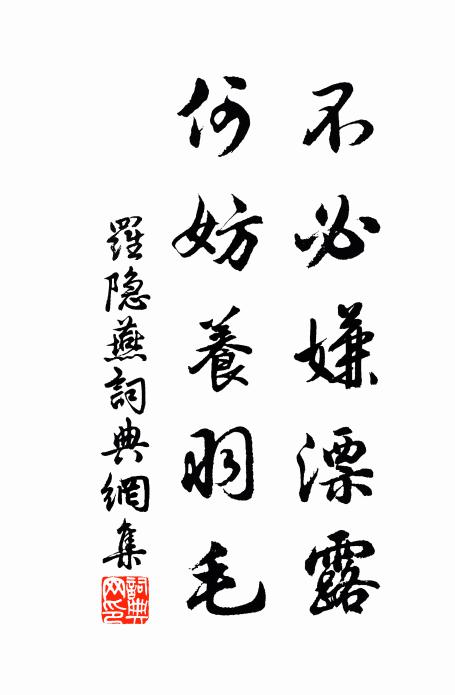 不必嫌漂露
何妨養羽毛
羅隐燕詞典網集
詞典网印